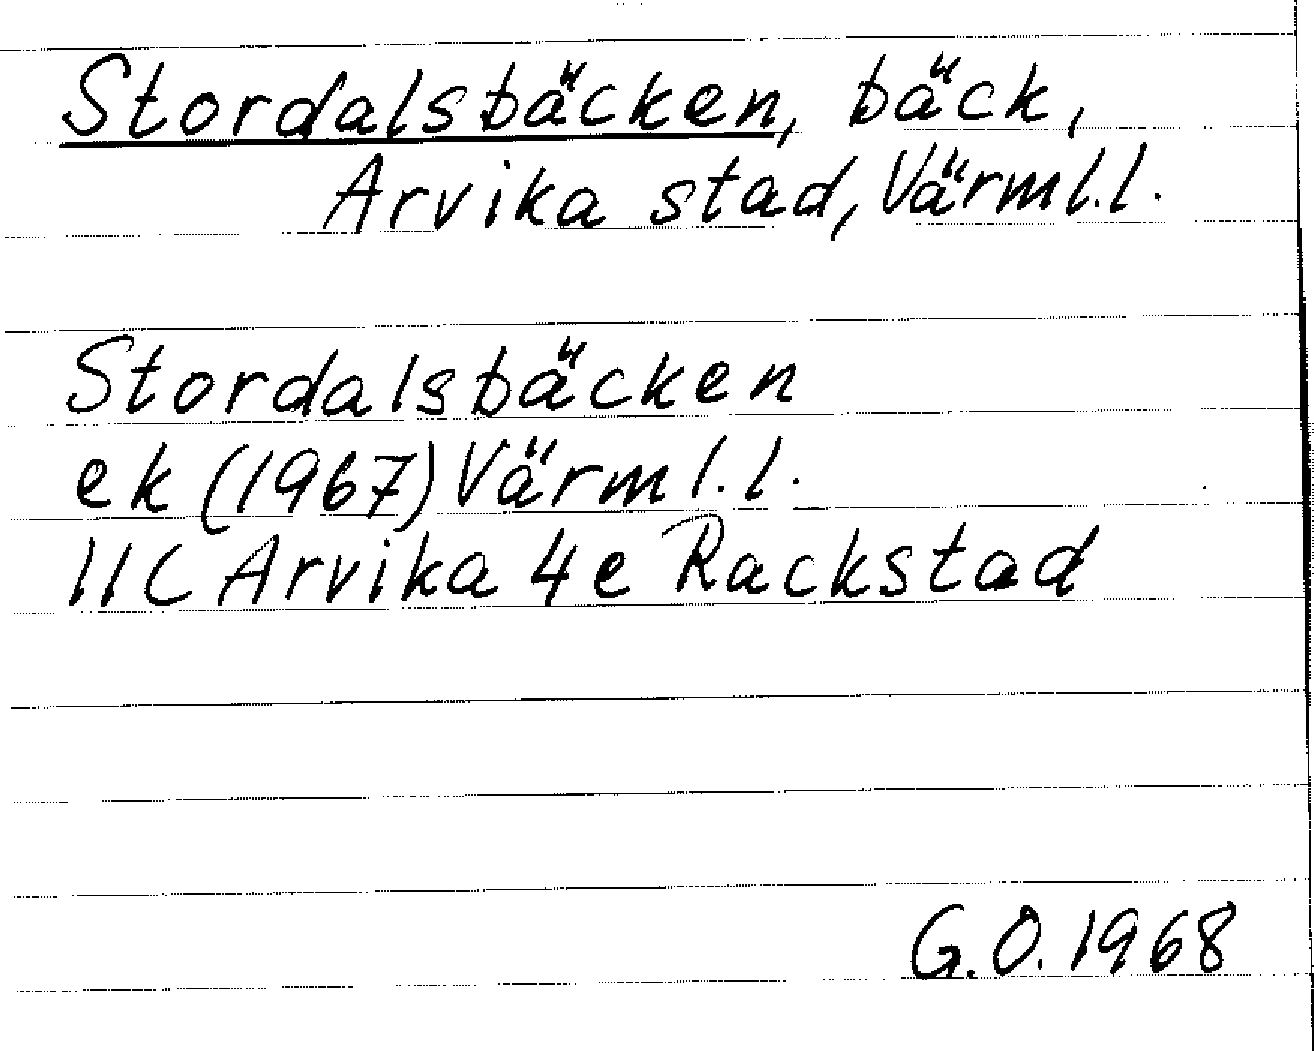 Stordalsbäcken, bäck,
Arvika stad, Värml.l.
Stordalsbäcken
ek (1967) Värml.l.
11C Arvika 4e Rackstad
G.O. 1968